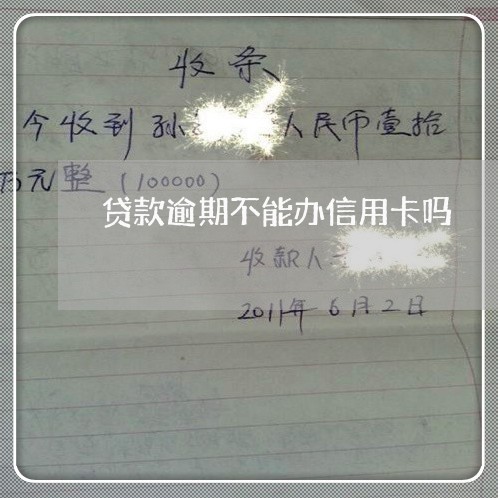 收条
今收到孙 人民币壹拾
万元整（100000）
贷款逾期不能办信用卡吗
收款人
2011年6月2日